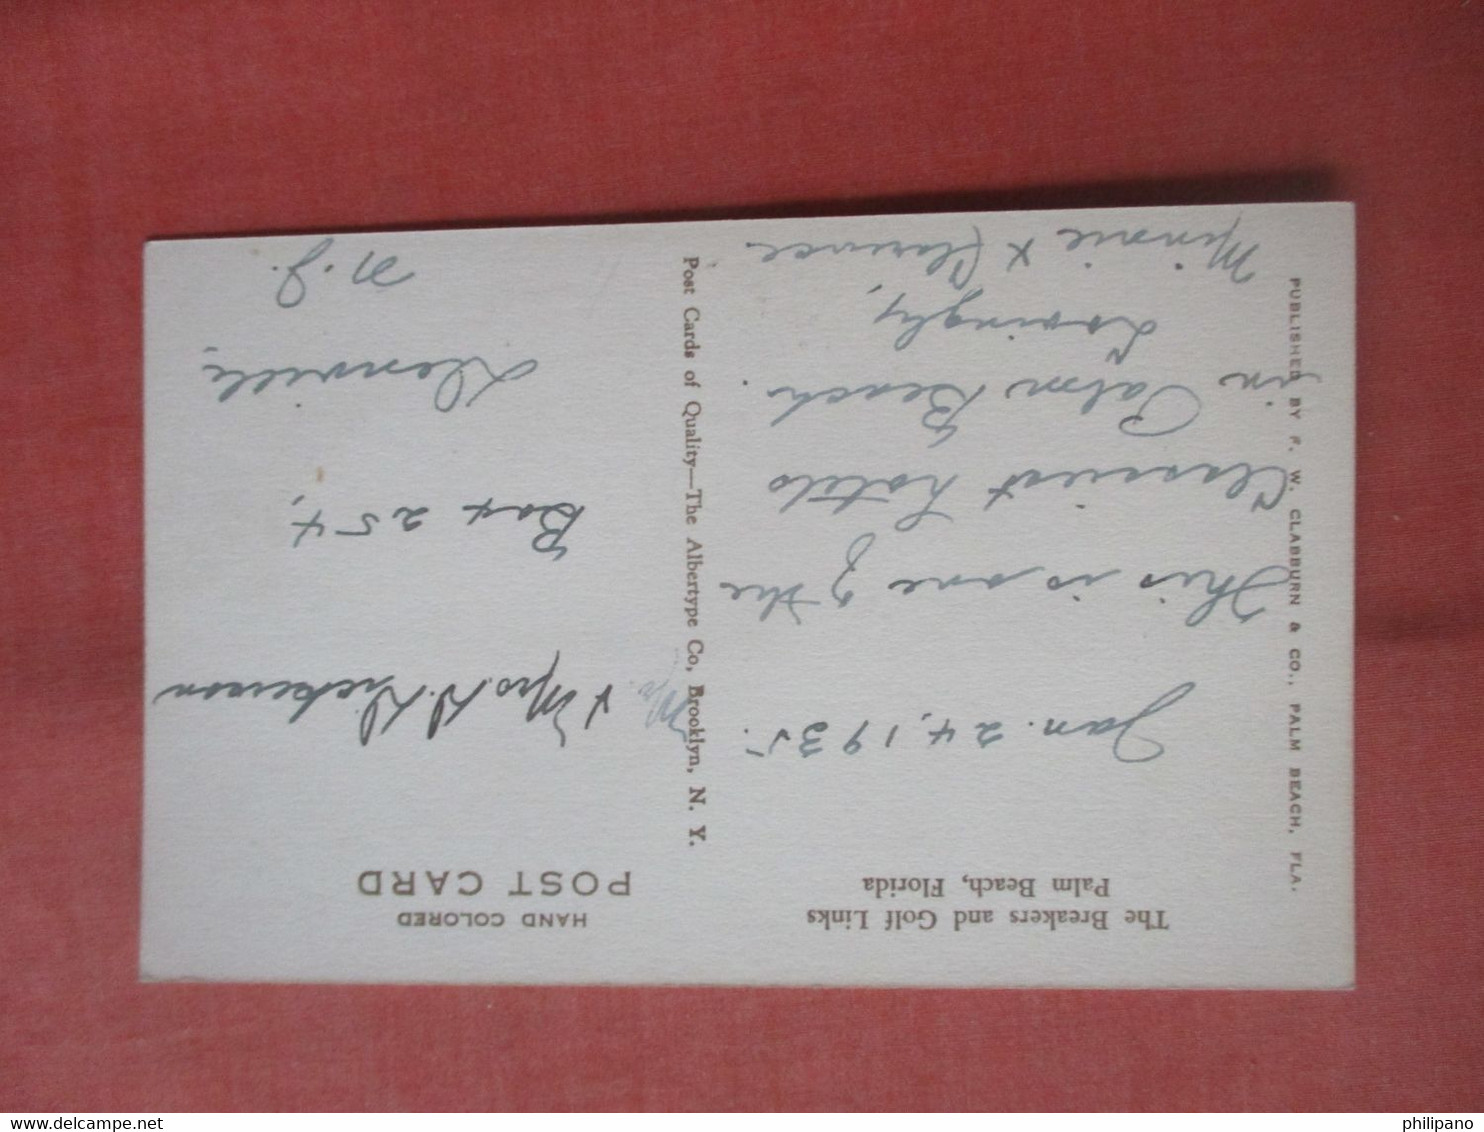 The Breakers and Golf Links
Palm Beach, Florida
Jan. 24, 1935.
This is one of the
Classiest hotels
in Palm Beach.
Lovingly,
Minnie & Clarence.
PUBLISHED BY F. W. CLABBURN & CO., PALM BEACH, FLA.
Post Cards of Quality—The Albertype Co., Brooklyn, N. Y.
HAND COLORED
POST CARD
Mr. & Mrs. H. Dickerson
Box 254,
Denville,
N. J.
philipano